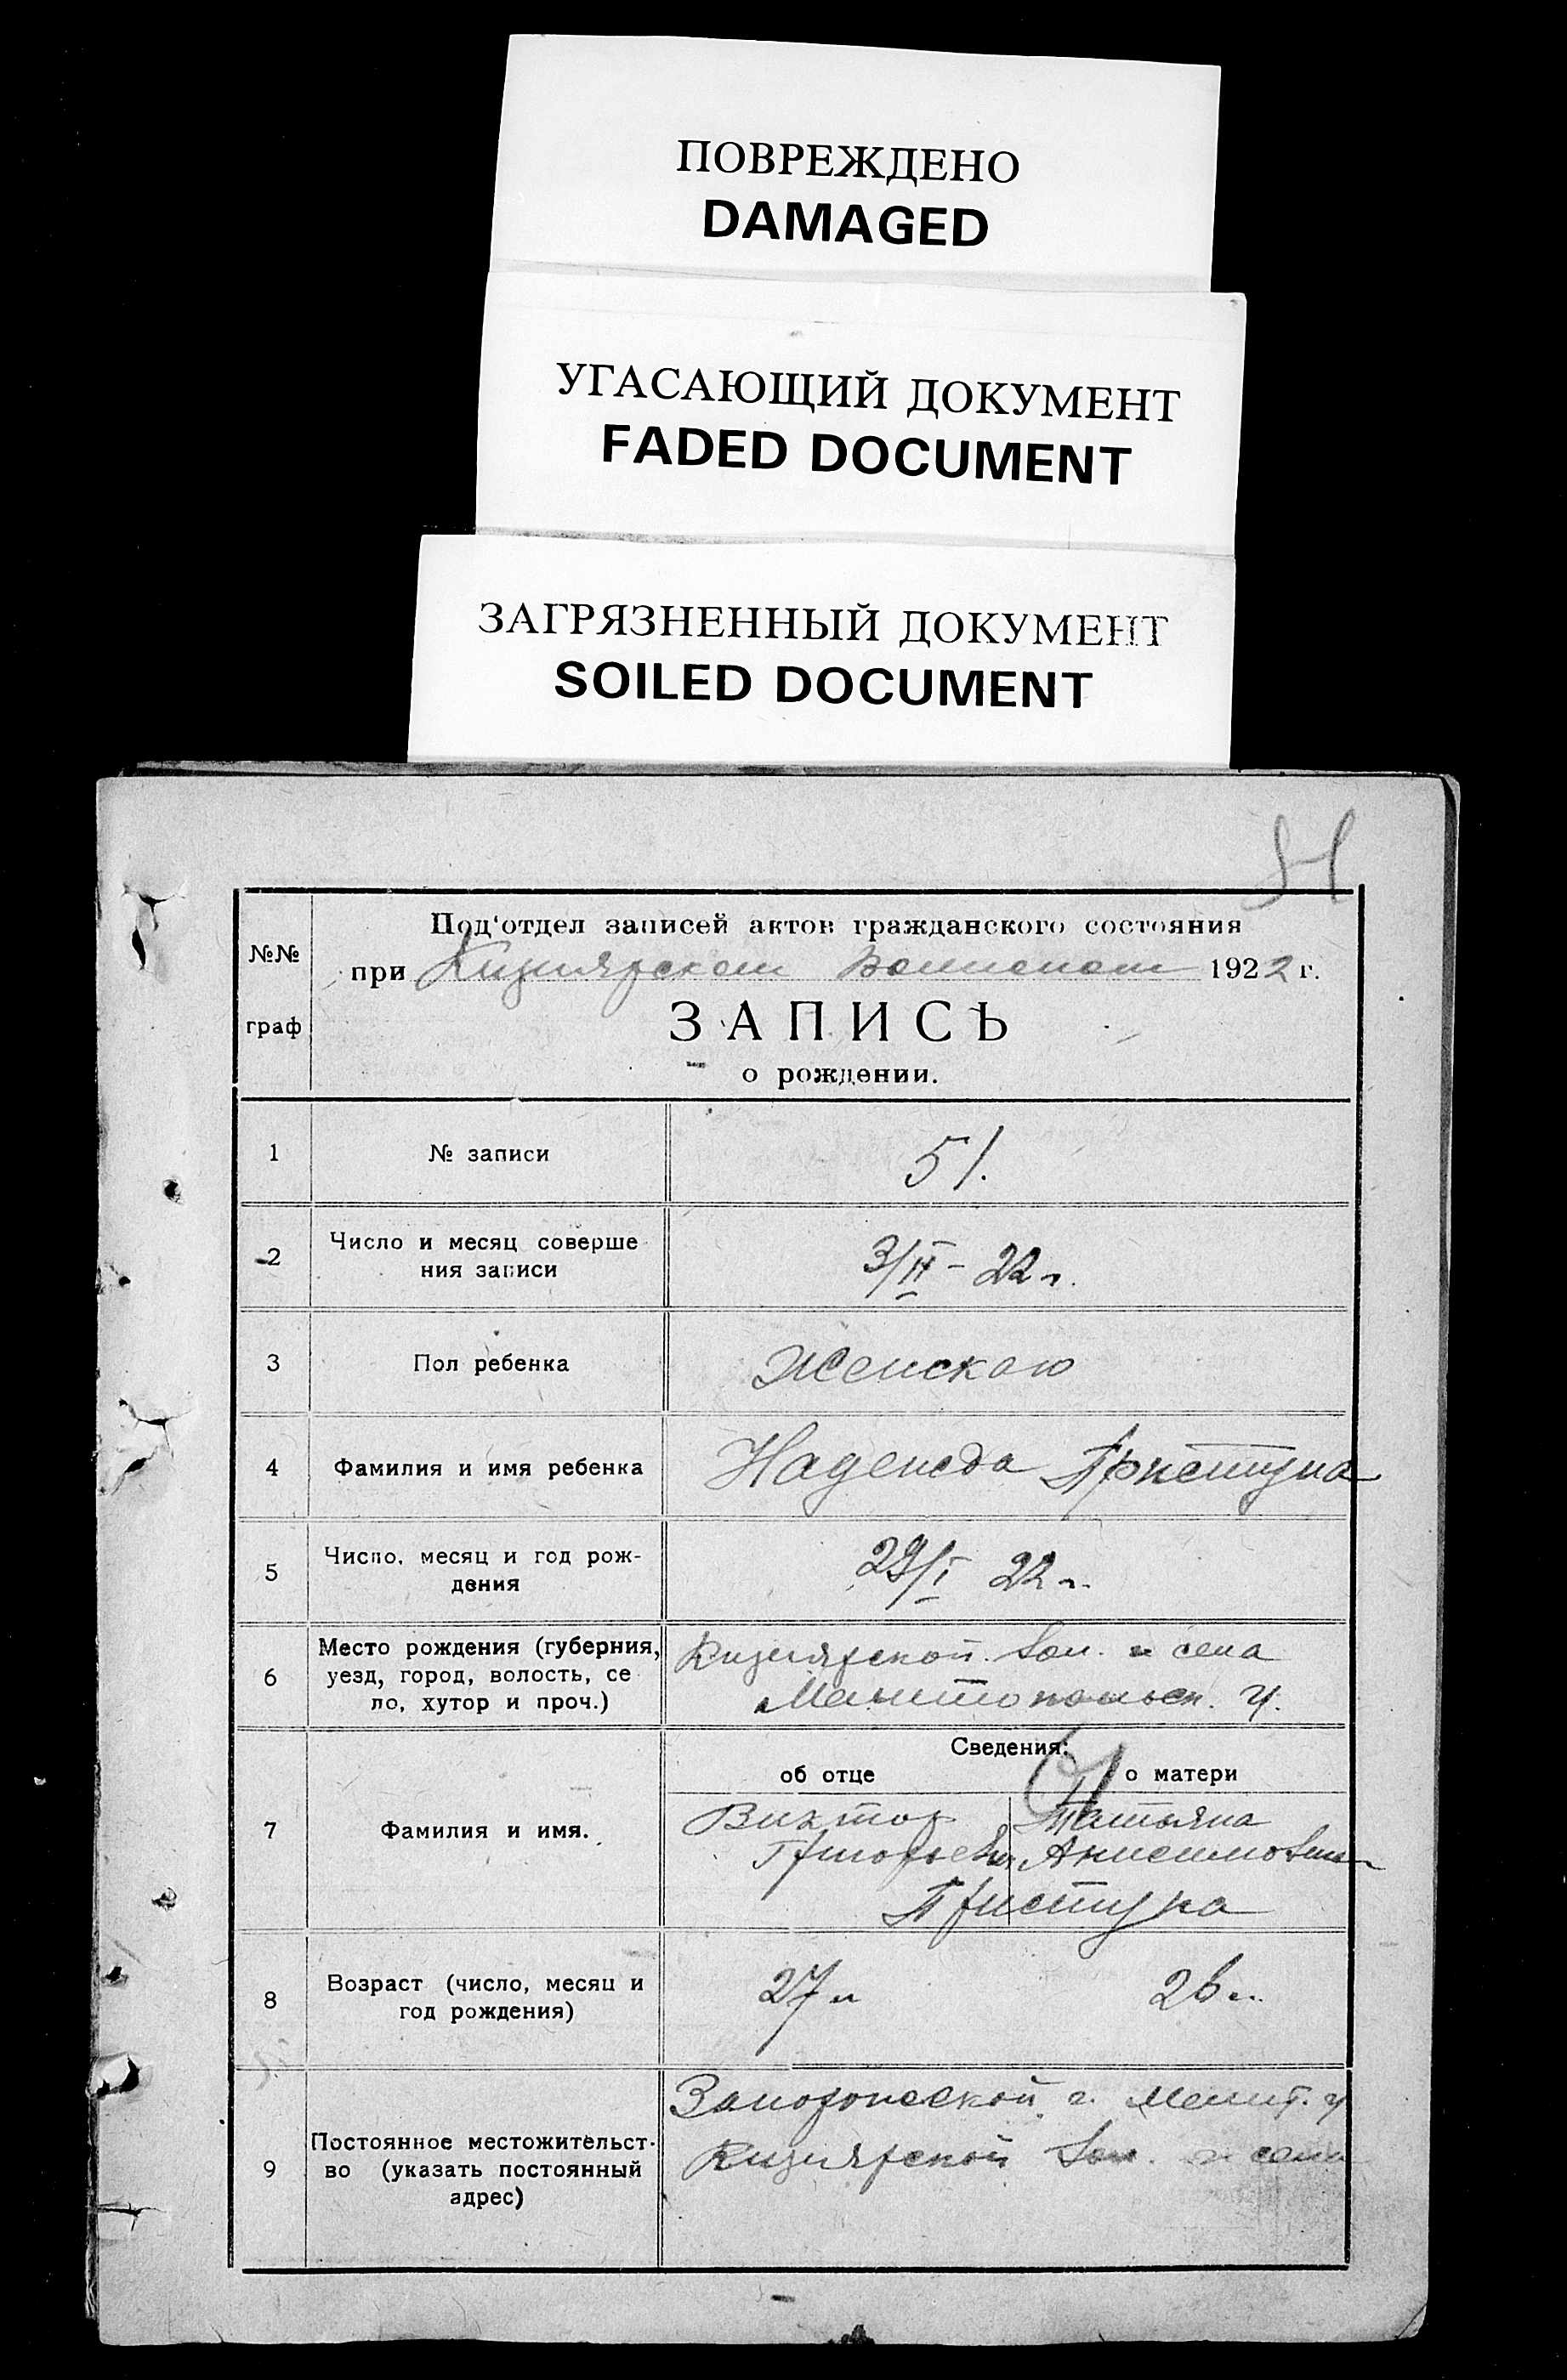 ПОВРЕЖДЕНО
DAMAGED
УГАСАЮЩИЙ ДОКУМЕНТ
FADED DOCUMENT
ЗАГРЯЗНЕННЫЙ ДОКУМЕНТ
SOILED DOCUMENT
№№ граф
Под'отдел записей актов гражданского состояния
при Кизиярском Волисполк 1922 г.
ЗАПИСЬ
о рождении.
1 № записи 51.
2 Число и месяц соверше
ния записи 3/II - 22 г.
3 Пол ребенка Женского
4 Фамилия и имя ребенка Надежда Приступа
5 Число, месяц и год рож-
дения 29/I 22 г.
6 Место рождения (губерния,
уезд, город, волость, се
ло, хутор и проч.)
Кизиярской вол. и села
Мелитопольск. у.
Сведения:
об отце о матери
7 Фамилия и имя.
Виктор Татьяна
Григорьевич Анисимовна
Приступа
8 Возраст (число, месяц и
год рождения) 27 л 26 л.
9 Постоянное местожительст-
во (указать постоянный
адрес)
Запорожской г. Мелит. у
Кизиярской вол. и села